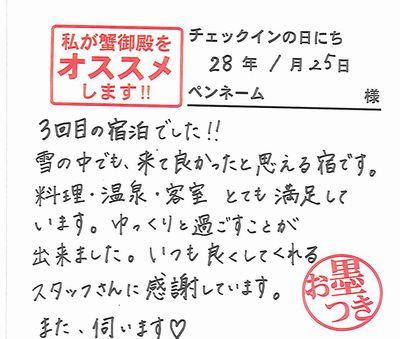 私が蟹御殿を
オススメ
します!!
チェックインの日にち
28 年 1 月 25 日
ペンネーム 様
3回目の宿泊でした!!
雪の中でも、来て良かったと思える宿です。
料理・温泉・客室 とても満足して
います。ゆっくりと過ごすことが
出来ました。いつも良くしてくれる
スタッフさんに感謝しています。
また、伺います♡
お墨つき